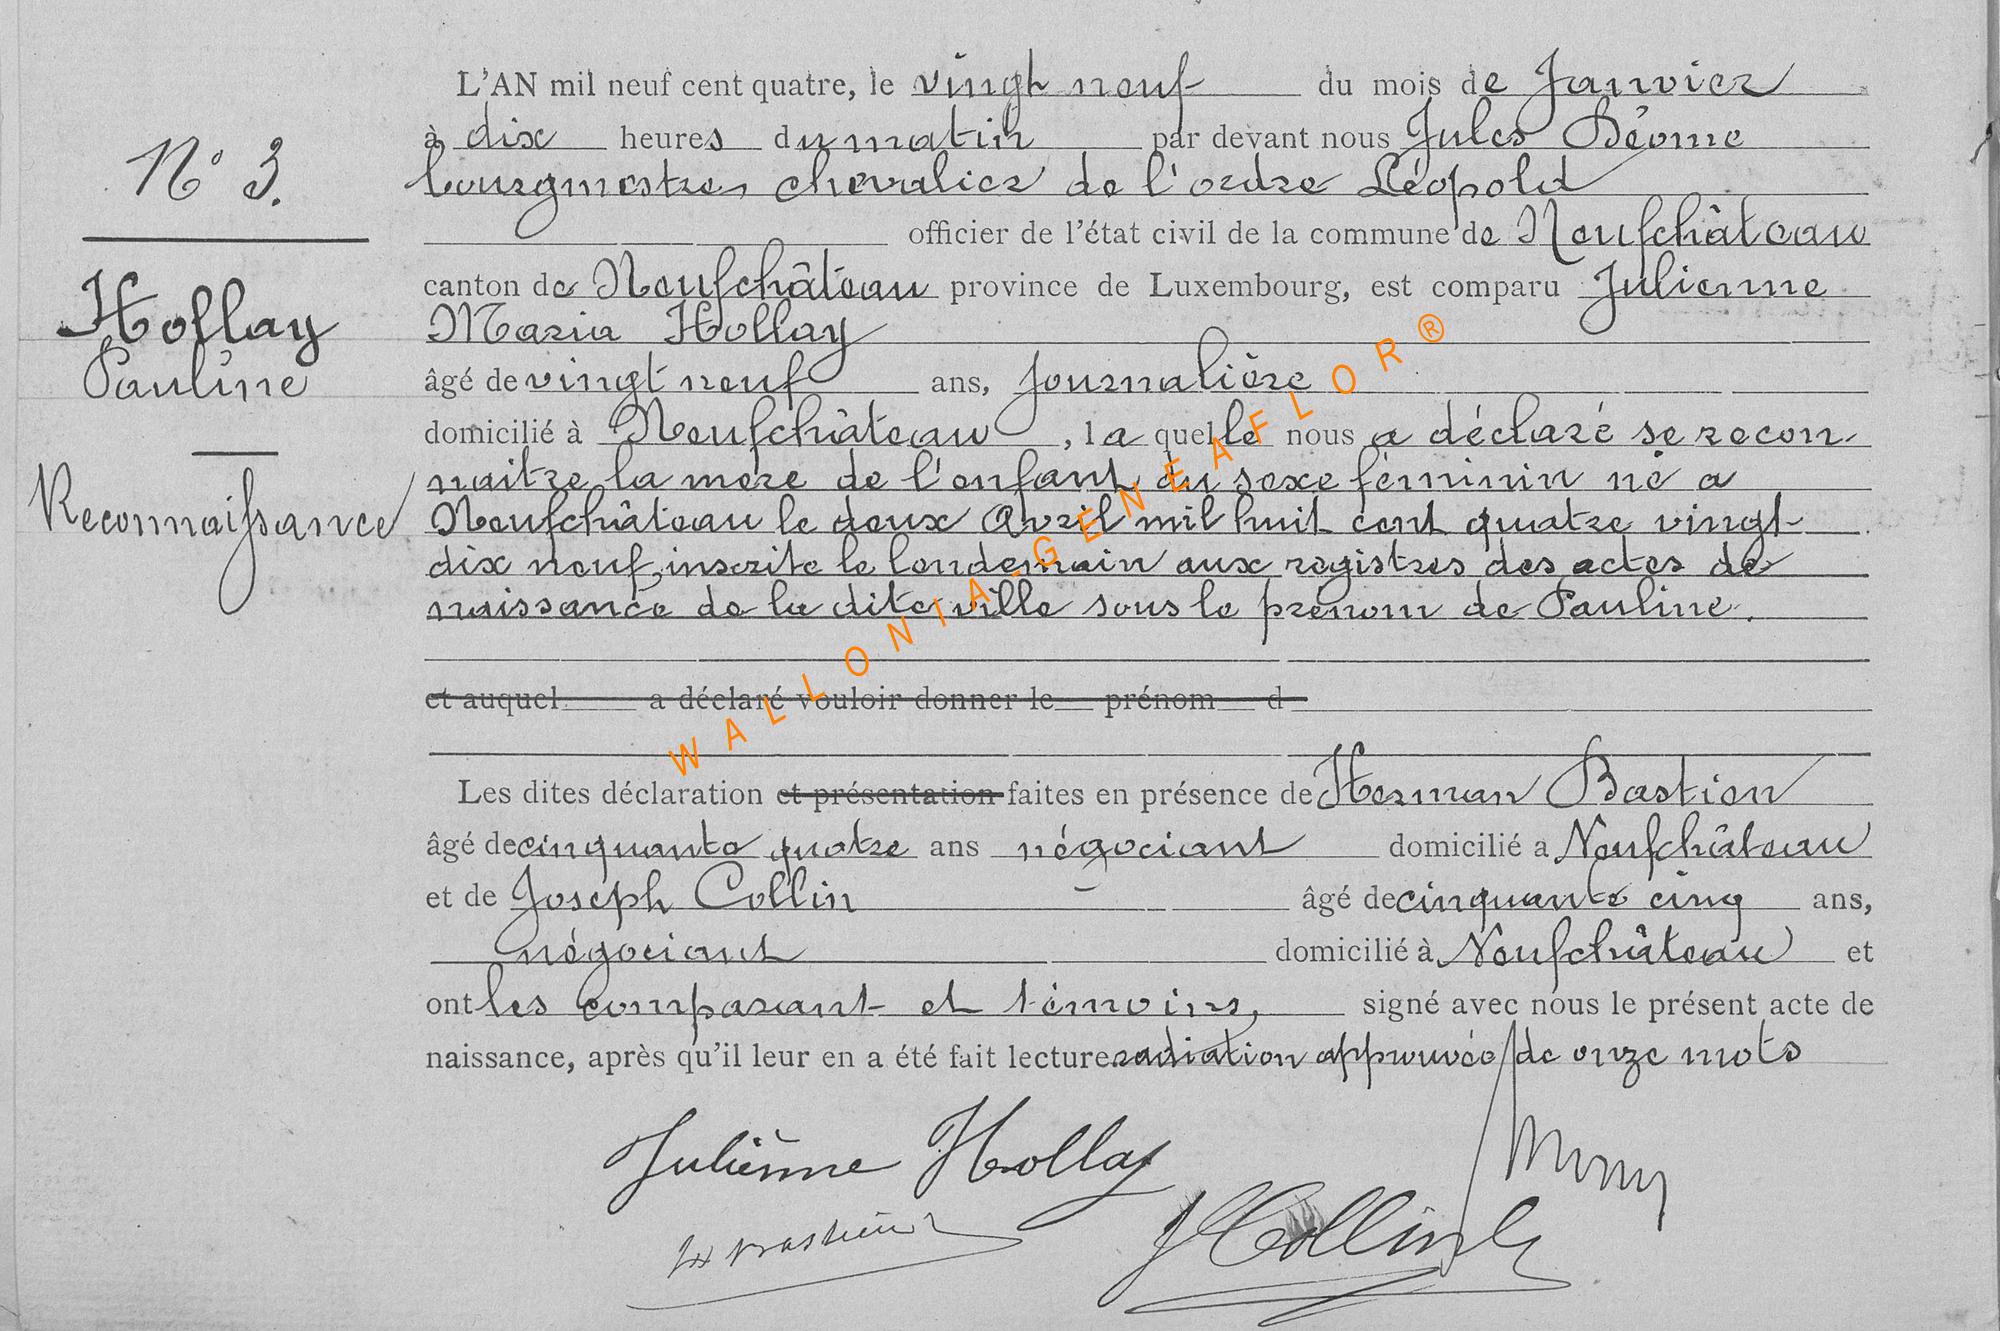 N° 3.
Hollay
Pauline
Reconnaissance
L'AN mil neuf cent quatre, le vingt neuf du mois de Janvier
à dix heures du matin par devant nous Jules
bourgmestre, chevalier de l'ordre Léopold
officier de l'état civil de la commune de Neufchâteau
canton de Neufchâteau province de Luxembourg, est comparu Julienne
Maria Hollay
âgé de vingt neuf ans, journalière
domicilié à Neufchâteau, la quelle nous a déclaré se recon-
naitre la mère de l'enfant du sexe féminin né a
Neufchâteau le deux Avril mil huit cent quatre vingt-
dix neuf, inscrite le lendemain aux registres des actes de
naissance de la dite ville sous le prénom de Pauline.
et auquel a déclaré vouloir donner le prénom d
Les dites déclaration et présentation faites en présence de Herman Bastien
âgé de cinquante quatre ans négociant domicilié a Neufchâteau
et de Joseph Collin âgé de cinquante cinq ans,
négociant domicilié à Neufchâteau et
ont les comparant et témoins, signé avec nous le présent acte de
naissance, après qu'il leur en a été fait lecture. radiation approuvée de onze mots
Julienne Hollay
H Bastien
J Collin
WALLONIA-GENEAFLOR®